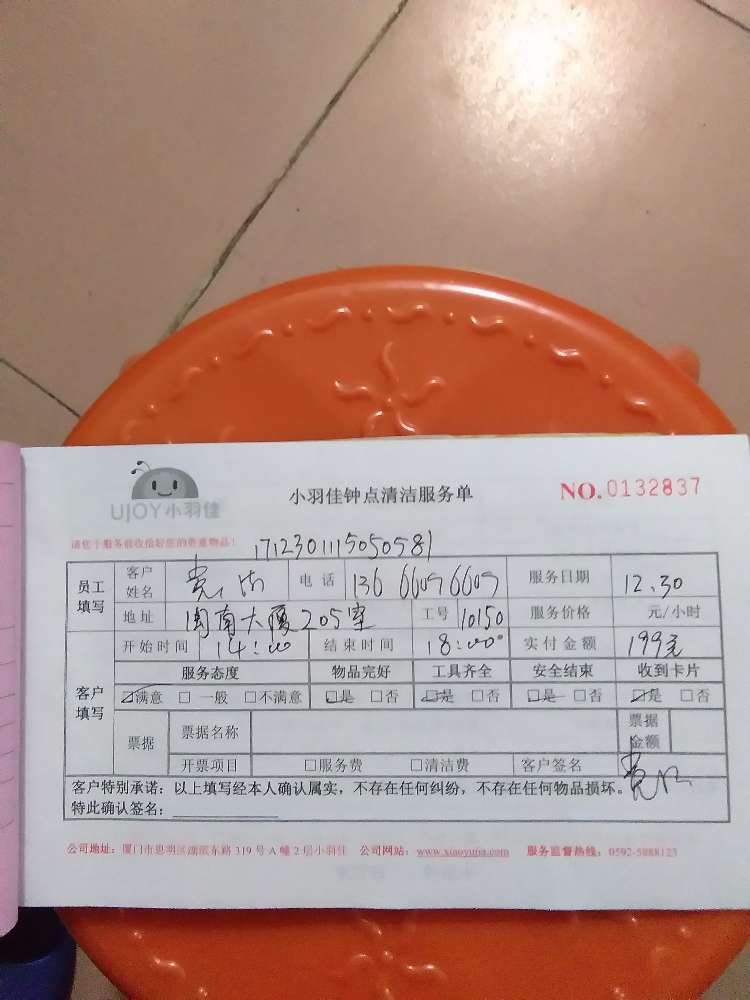 UJOY小羽佳
小羽佳钟点清洁服务单
NO.0132837
请您于服务前收拾好您的贵重物品!
1712301115050581
员工填写 客户姓名 电话 136 6609 6609 服务日期 12.30
地址 闽南大厦205室 工号 10150 服务价格 元/小时
客户填写 开始时间 14:00 结束时间 18:00 实付金额 199元
服务态度 物品完好 工具齐全 安全结束 收到卡片
☑满意 □一般 □不满意 ☑是 □否 ☑是 □否 ☑是 □否 ☑是 □否
票据 票据名称 票据金额
开票项目 □服务费 □清洁费 客户签名
客户特别承诺：以上填写经本人确认属实，不存在任何纠纷，不存在任何物品损坏。
特此确认签名：
公司地址：厦门市思明区湖滨东路 319 号 A 幢 2 层小羽佳 公司网站：www.xiaoyujia.com 服务监督热线：0592-5888123